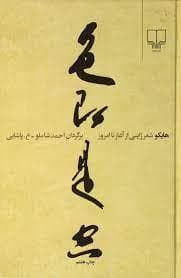 色
即
هایکو شعر ژاپنی از آغاز تا امروز
برگردان احمد شاملو - ع. پاشایی
是
空
چاپ هفتم